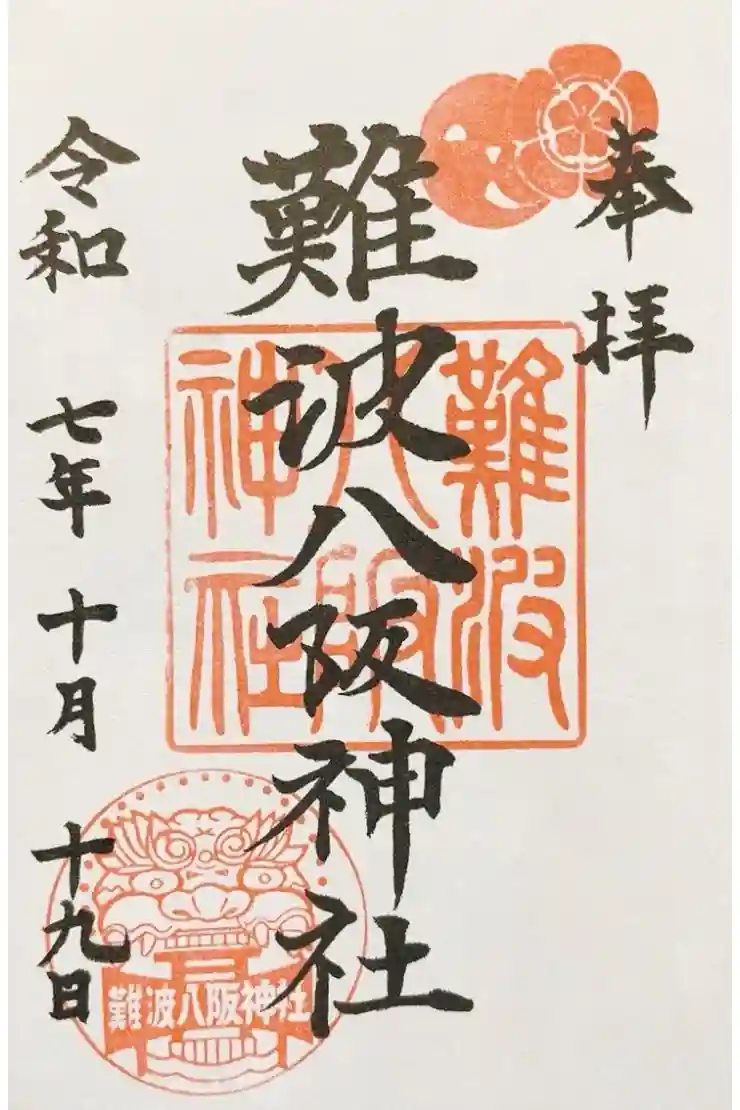 奉拝
難波八阪神社
令和七年十月十九日
難波
八阪
神社
難波八阪神社